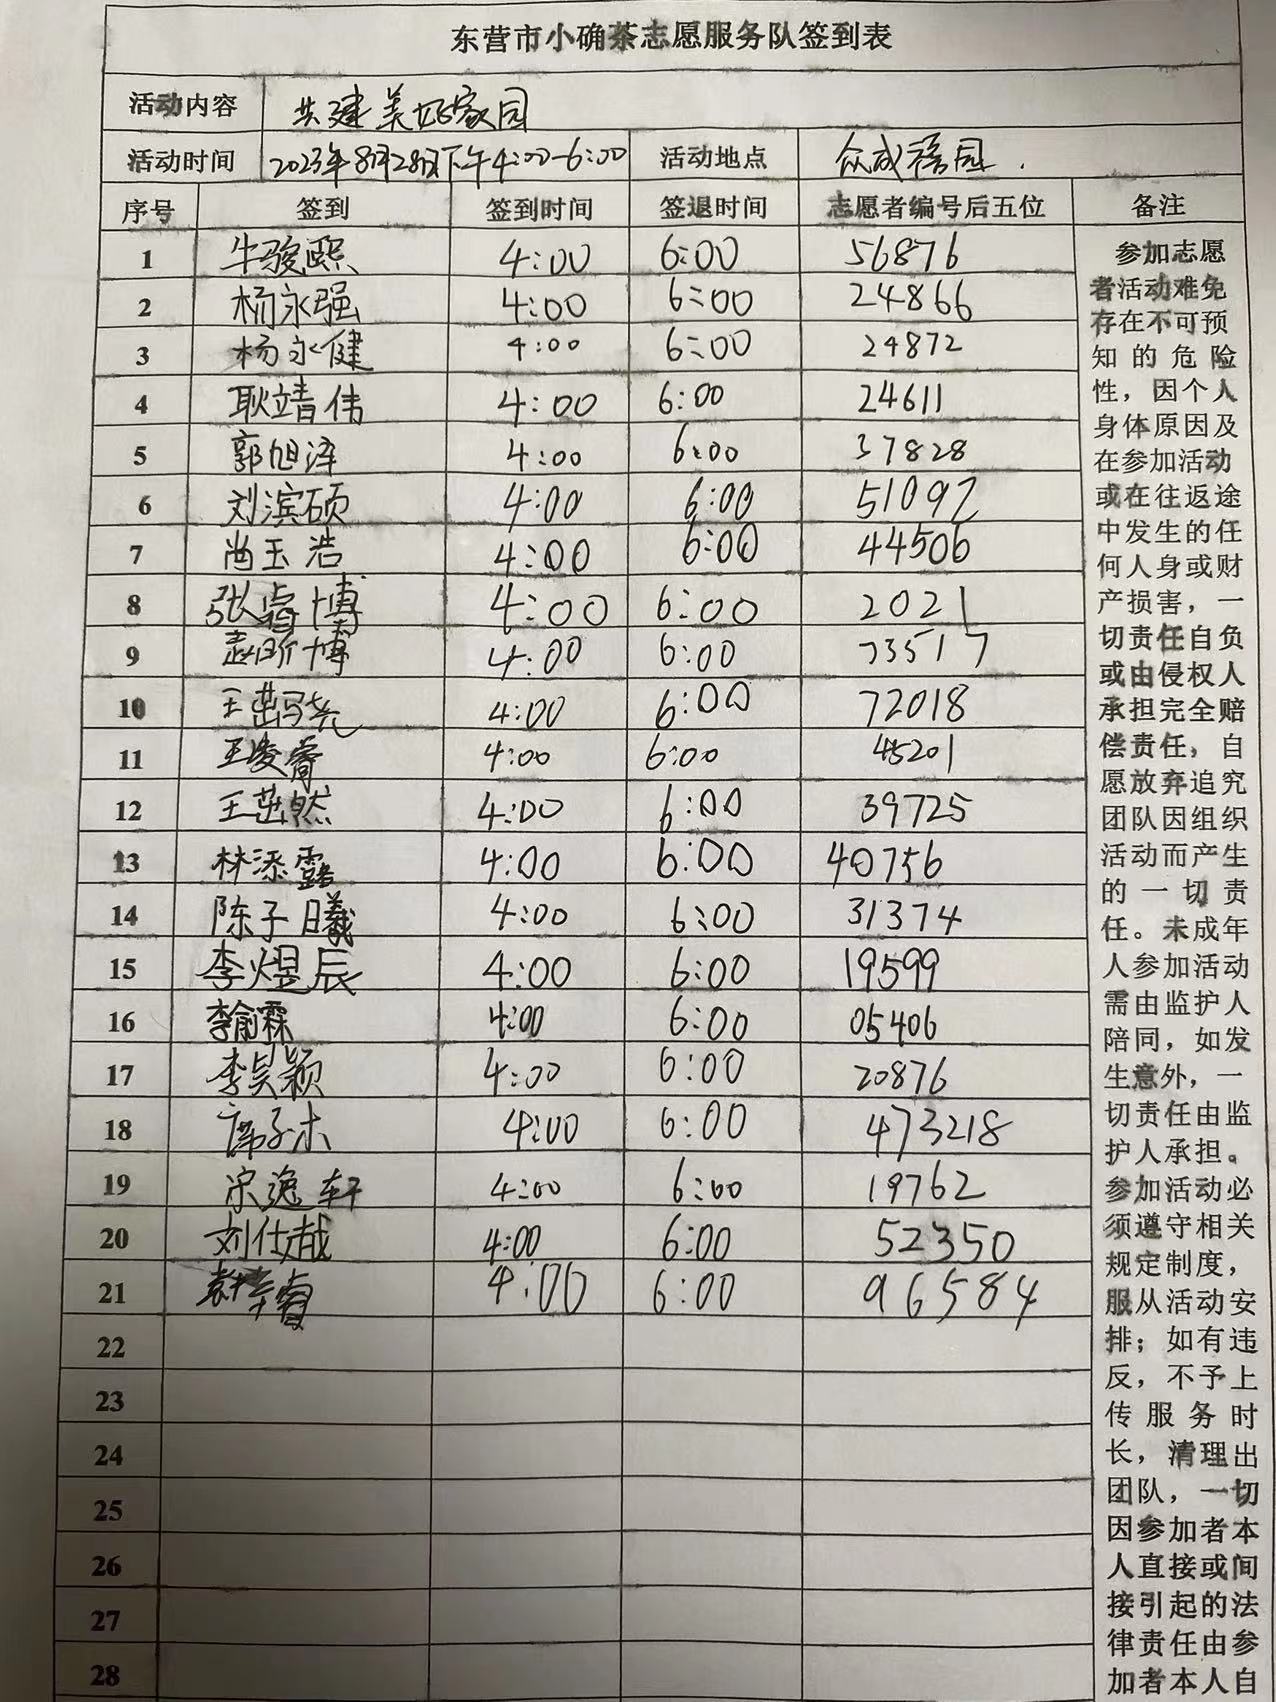 东营市小确茶志愿服务队签到表
活动内容 共建美好家园
活动时间 2023年8月28日下午4:00-6:00 活动地点 众成福园.
序号 签到 签到时间 签退时间 志愿者编号后五位 备注
1 牛骏熙 4:00 6:00 56876
2 杨永强 4:00 6:00 24866
3 杨永健 4:00 6:00 24872
4 耿靖伟 4:00 6:00 24611
5 郭旭泽 4:00 6:00 37828
6 刘滨硕 4:00 6:00 51092
7 尚玉浩 4:00 6:00 44506
8 张睿博 4:00 6:00 2021
9 博 4:00 6:00 73517
10 王 4:00 6:00 72018
11 王凌霄 4:00 6:00 45201
12 王茁然 4:00 6:00 39725
13 林添露 4:00 6:00 40756
14 陈子曦 4:00 6:00 31374
15 李煜辰 4:00 6:00 19599
16 李俞霖 4:00 6:00 05406
17 李昊颖 4:00 6:00 20876
18 席子木 4:00 6:00 473218
19 宋逸轩 4:00 6:00 19762
20 刘仕彧 4:00 6:00 52350
21 4:00 6:00 96584
22
23
24
25
26
27
28
参加志愿
者活动难免
存在不可预
知的危险
性，因个人
身体原因及
在参加活动
或在往返途
中发生的任
何人身或财
产损害，一
切责任自负
或由侵权人
承担完全赔
偿责任，自
愿放弃追究
团队因组织
活动而产生
的一切责
任。未成年
人参加活动
需由监护人
陪同，如发
生意外，一
切责任由监
护人承担。
参加活动必
须遵守相关
规定制度，
服从活动安
排；如有违
反，不予上
传服务时
长，清理出
团队，一切
因参加者本
人直接或间
接引起的法
律责任由参
加者本人自